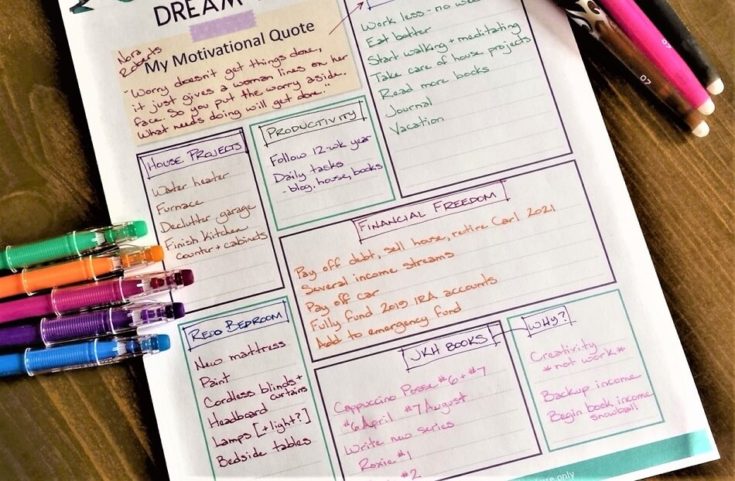 DREAM
My Motivational Quote
Nora
Roberts
"Worry doesn't get things done,
it just gives a woman lines on her
face. So you put the worry aside.
What needs doing will get done."
Work less - no
Eat better
Start walking + meditating
Take care of house projects
Read more books
Journal
Vacation
PRODUCTIVITY
Follow 12-wk year
Daily tasks
- blog, house, books
HOUSE PROJECTS
Water heater
Furnace
Declutter garage
Finish kitchen
counter + cabinets
FINANCIAL FREEDOM
Pay off debt, sell house, retire Carl 2021
Several income streams
Pay off car
Fully fund 2019 IRA accounts
Add to emergency fund
REDO BEDROOM
New mattress
Paint
Cordless blinds +
curtains
Headboard
Lamps [+ light?]
Bedside tables
JKH BOOKS
Cappuccino Posse #6 + #7
#6 April #7 August
Write new series
Roxie #1
#2
WHY?
Creativity
*not work*
Backup income
Begin book income
snowball
only
07
07